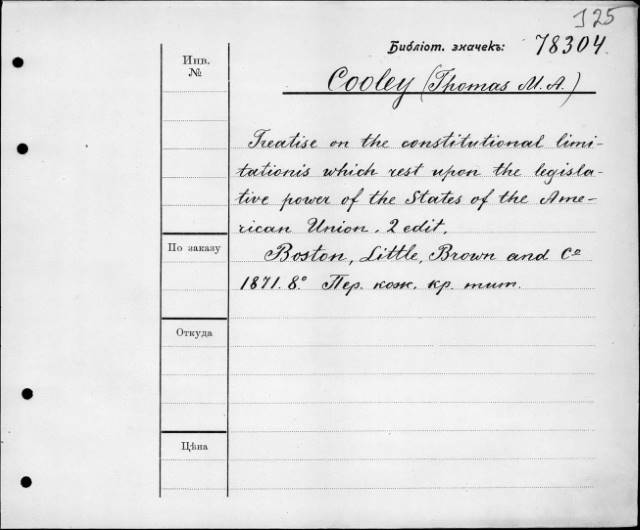 J 25
Библіот. значекъ: 78304.
Инв.
№
Cooley (Thomas M. A.)
Treatise on the constitutional limi-
tationis which rest upon the legisla-
tive power of the States of the Ame-
rican Union. 2 edit.
По заказу
Boston, Little, Brown and Co
1871. 8.° Пер. кож. кр. тит.
Откуда
Цѣна